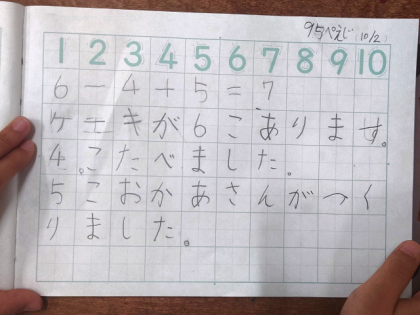 95ぺえじ 10/2
1 2 3 4 5 6 7 8 9 10
6-4+5=7
ケーキが6こあります。
4こたべました。
5こおかあさんがつく
りました。